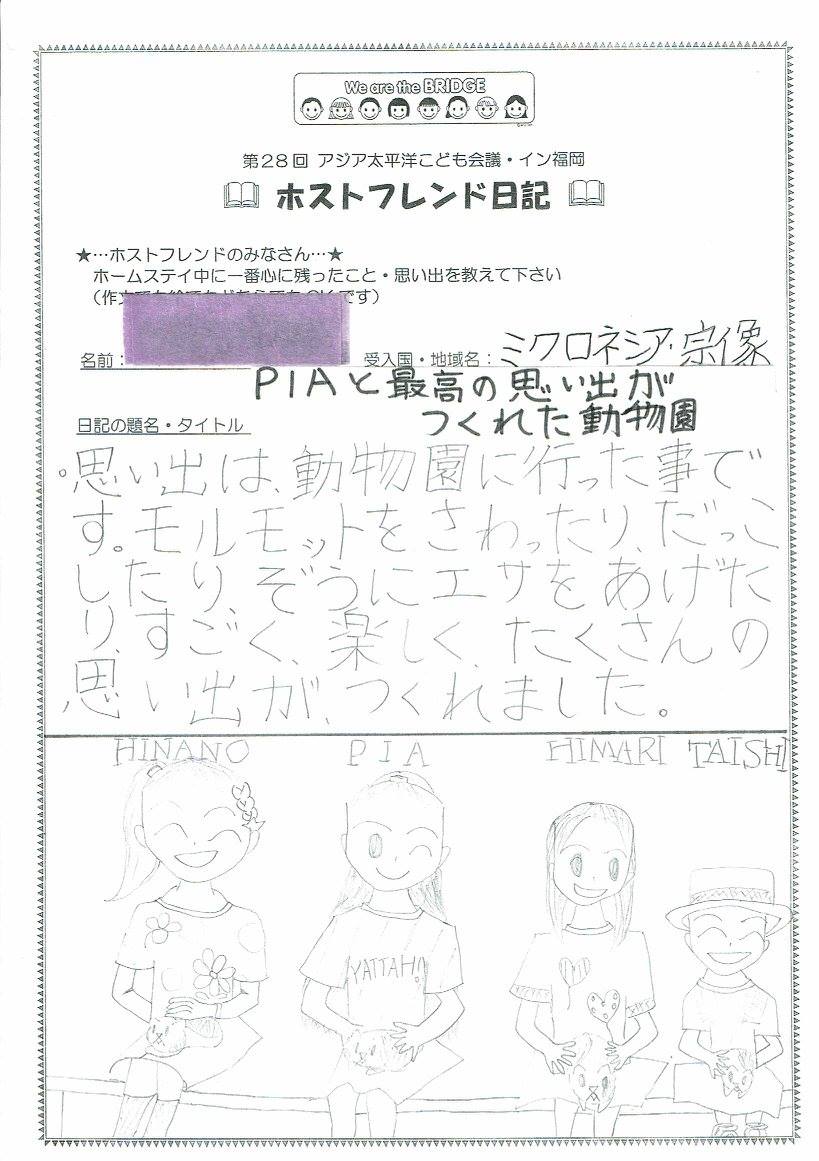 We are the BRIDGE
第28回 アジア太平洋こども会議・イン福岡
ホストフレンド日記
★…ホストフレンドのみなさん…★
ホームステイ中に一番心に残ったこと・思い出を教えて下さい
（作文でも絵でもどちらでもOKです）
名前： 受入国・地域名： ミクロネシア・宗像
PIAと最高の思い出が
つくれた動物園
日記の題名・タイトル
。思い出は、動物園に行った事で
す。モルモットをさわったり、だっこ
したり、ぞうにエサをあげた
り、すごく、楽しく、たくさんの
思い出が、つくれました。
HINANO PIA HIMARI TAISHI
YATTAH!